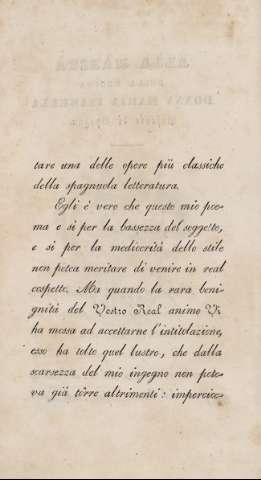 tare una delle opere più classiche
della spagnuola letteratura.
Egli è vero che questo mio poe-
ma e si per la bassezza del soggetto,
e si per la mediocrità dello stile
non potea meritare di venire in real
cospetto. Ma quando la rara beni-
gnità del Vostro Real animo Vi
ha mossa ad accettarne l'intitolazione,
esso ha tolto quel lustro, che dalla
scarsezza del mio ingegno non pote-
va già tôrre altrimenti: imperoc-